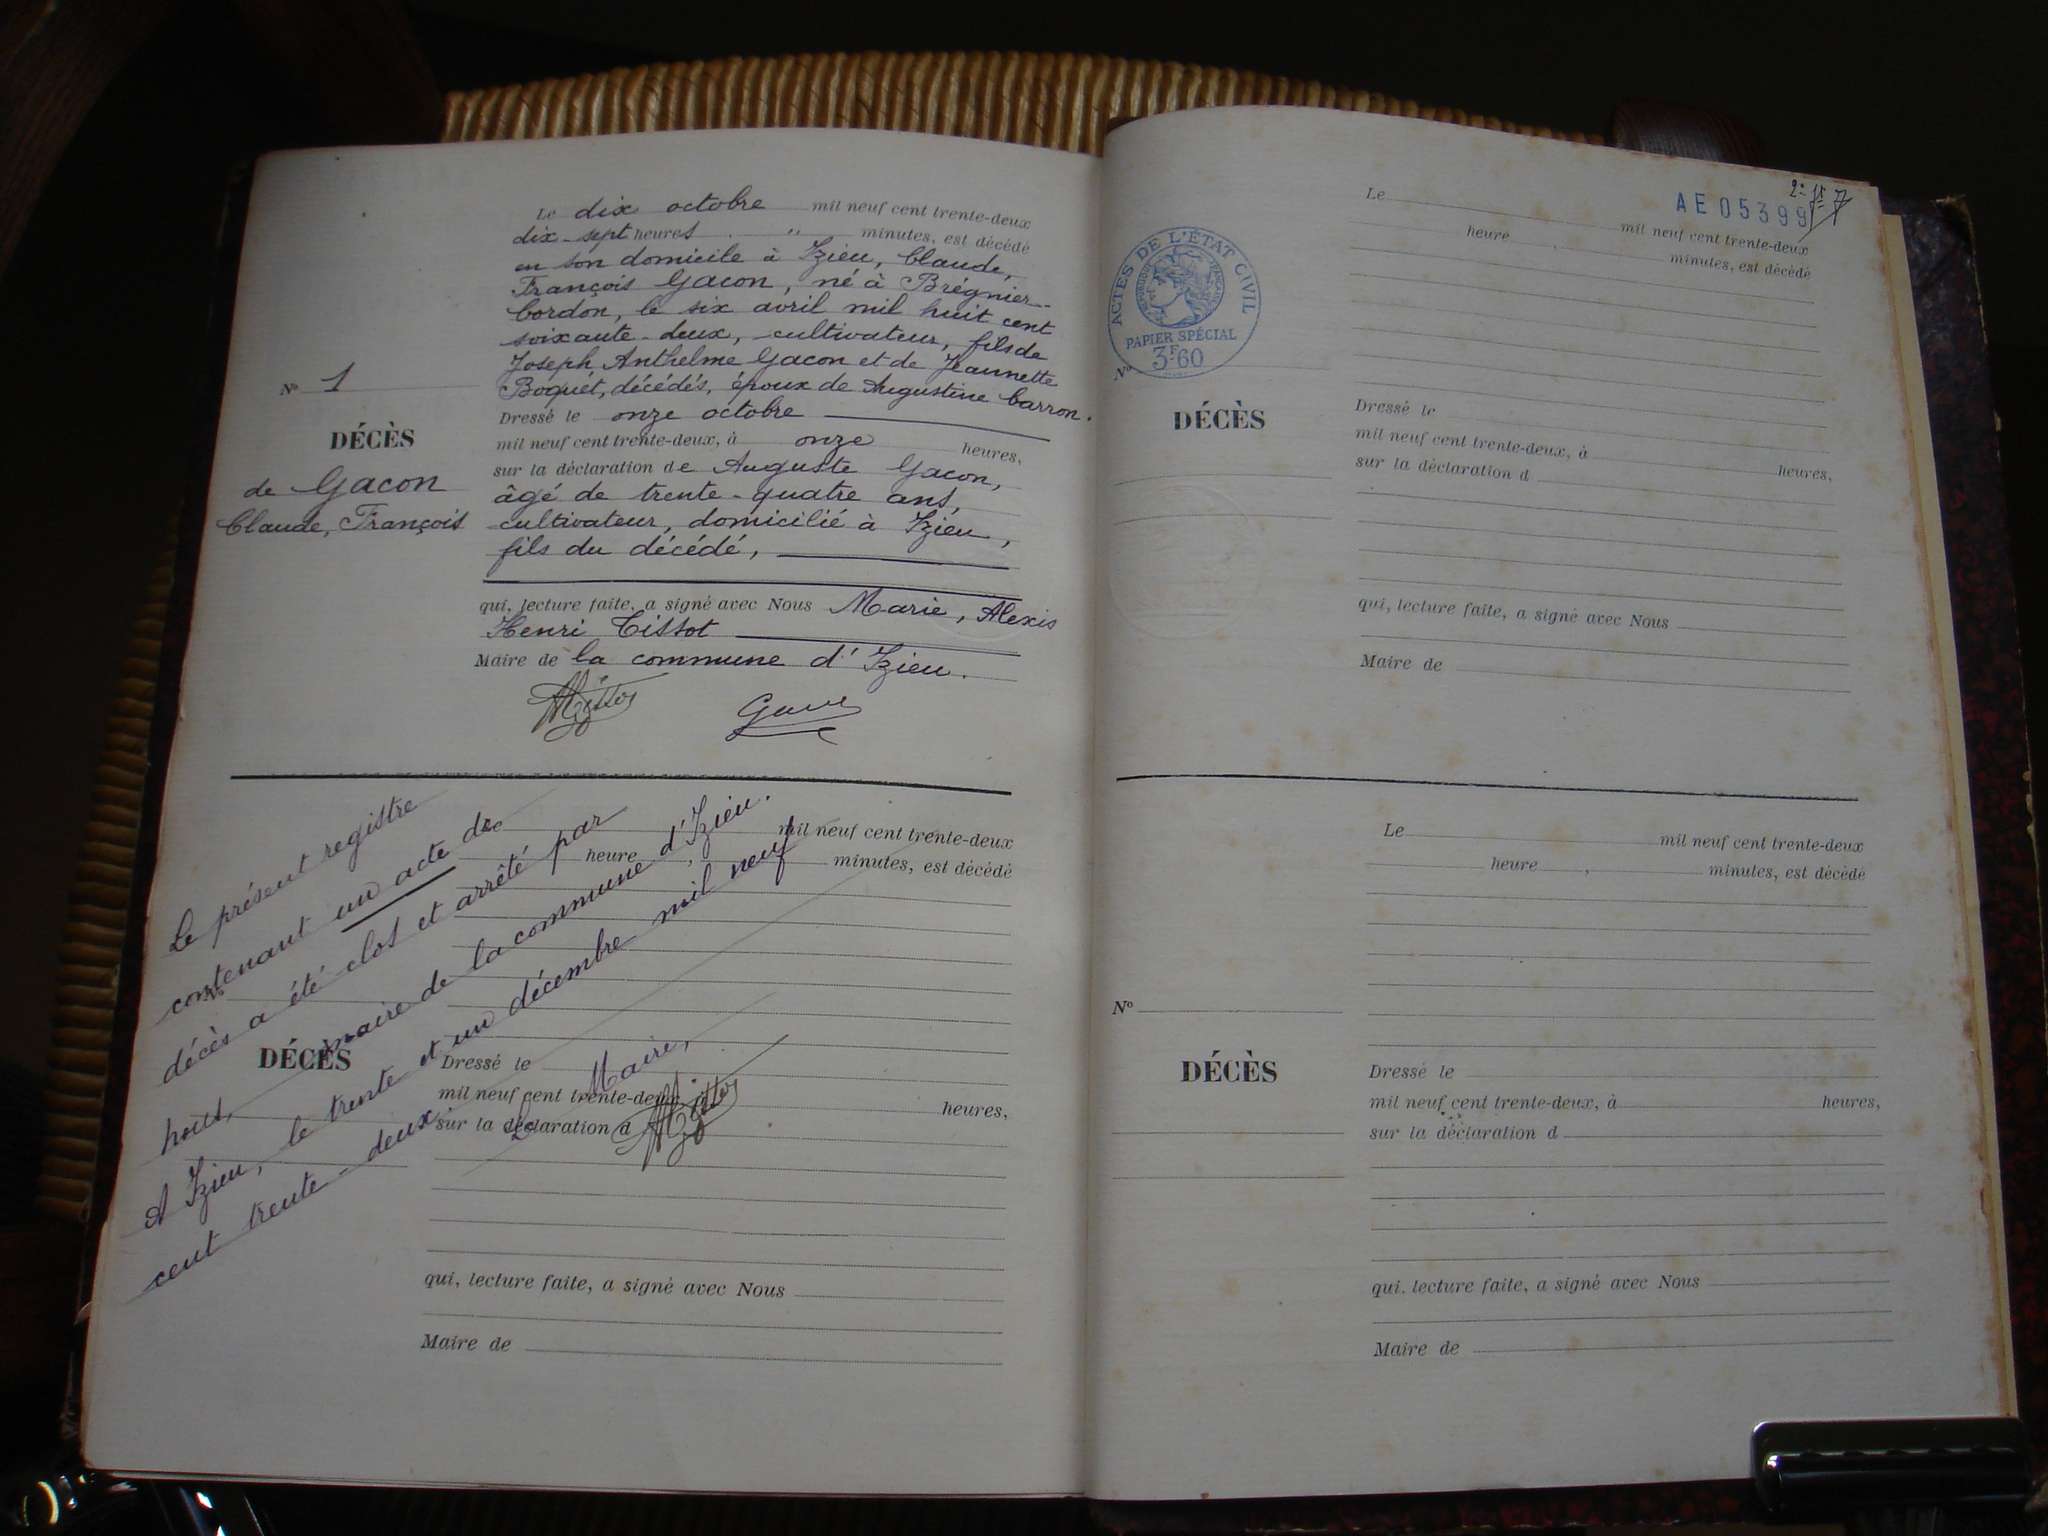 Le dix octobre mil neuf cent trente-deux
dix-sept heures " minutes, est décédé
en son domicile à Izieu, Claude,
François Gacon, né à Brégnier-
Cordon, le six avril mil huit cent
soixante-deux, cultivateur, fils de
Joseph Anthelme Gacon et de Jeannette
Boquet, décédés, époux de Augustine Carron.
Nº 1
DÉCÈS
de Gacon
Claude, François
Dressé le onze octobre
mil neuf cent trente-deux, à onze heures,
sur la déclaration de Auguste Gacon,
âgé de trente-quatre ans,
cultivateur, domicilié à Izieu,
fils du décédé,
qui, lecture faite, a signé avec Nous Marie, Alexis
Henri Tissot
Maire de la commune d'Izieu.
Tissot
Le présent registre
contenant un acte de
décès a été clos et arrêté par
nous, maire de la commune d'Izieu.
A Izieu, le trente et un décembre mil neuf
cent trente-deux.
Le Maire,
Tissot
mil neuf cent trente-deux
heure , minutes, est décédé
Nº
DÉCÈS
Dressé le
mil neuf cent trente-deux, à heures,
sur la déclaration d
qui, lecture faite, a signé avec Nous
Maire de
AE 05399
ACTES DE L'ÉTAT CIVIL
RÉPUBLIQUE FRANÇAISE
PAPIER SPÉCIAL
3F60
Le mil neuf cent trente-deux
heure , minutes, est décédé
Nº
DÉCÈS
Dressé le
mil neuf cent trente-deux, à heures,
sur la déclaration d
qui, lecture faite, a signé avec Nous
Maire de
Le mil neuf cent trente-deux
heure , minutes, est décédé
Nº
DÉCÈS
Dressé le
mil neuf cent trente-deux, à heures,
sur la déclaration d
qui, lecture faite, a signé avec Nous
Maire de